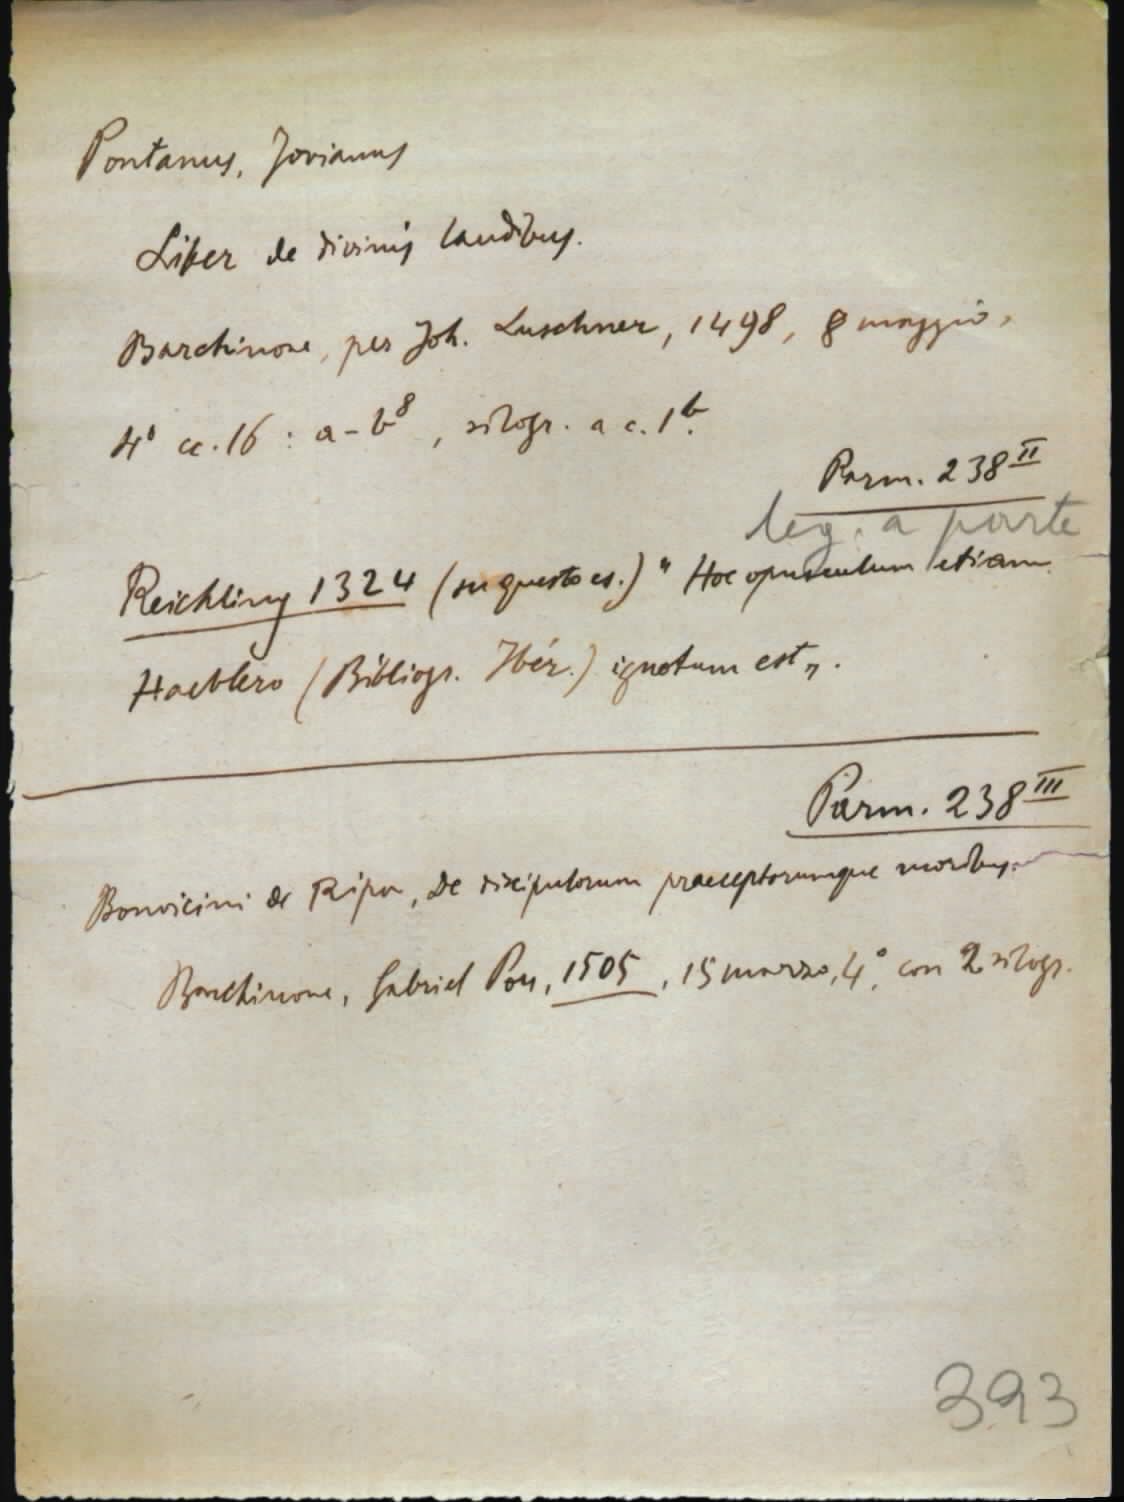 Pontanus, Jovianus
Liber de divinis laudibus.
Barchinone, per Joh. Luschner, 1498, 8 maggio,
4° cc. 16 : a-b⁸, silogr. a c. 1ᵇ.
Parm. 238 II
leg. a parte
Reichling 1324 (su questo es.) " Hoc opusculum etiam
Haeblero (Bibliogr. Ibér.) ignotum est „.
Parm. 238 III
Bonvicini de Ripa, De discipulorum praeceptorumque moribus.
Barchinone, Gabriel Pou, 1505, 15 marzo, 4°, con 2 silogr.
393